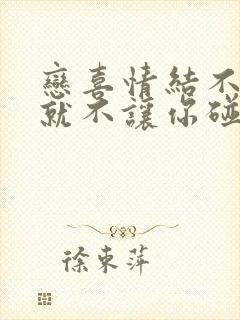 戀喜情結不
就不讓你碰
徐東萍